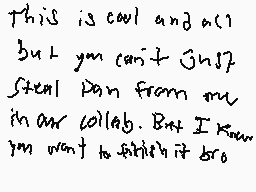 This is cool and all
but you can't Just
steal Dan from me
in our collab. But I know
you want to finish it bro